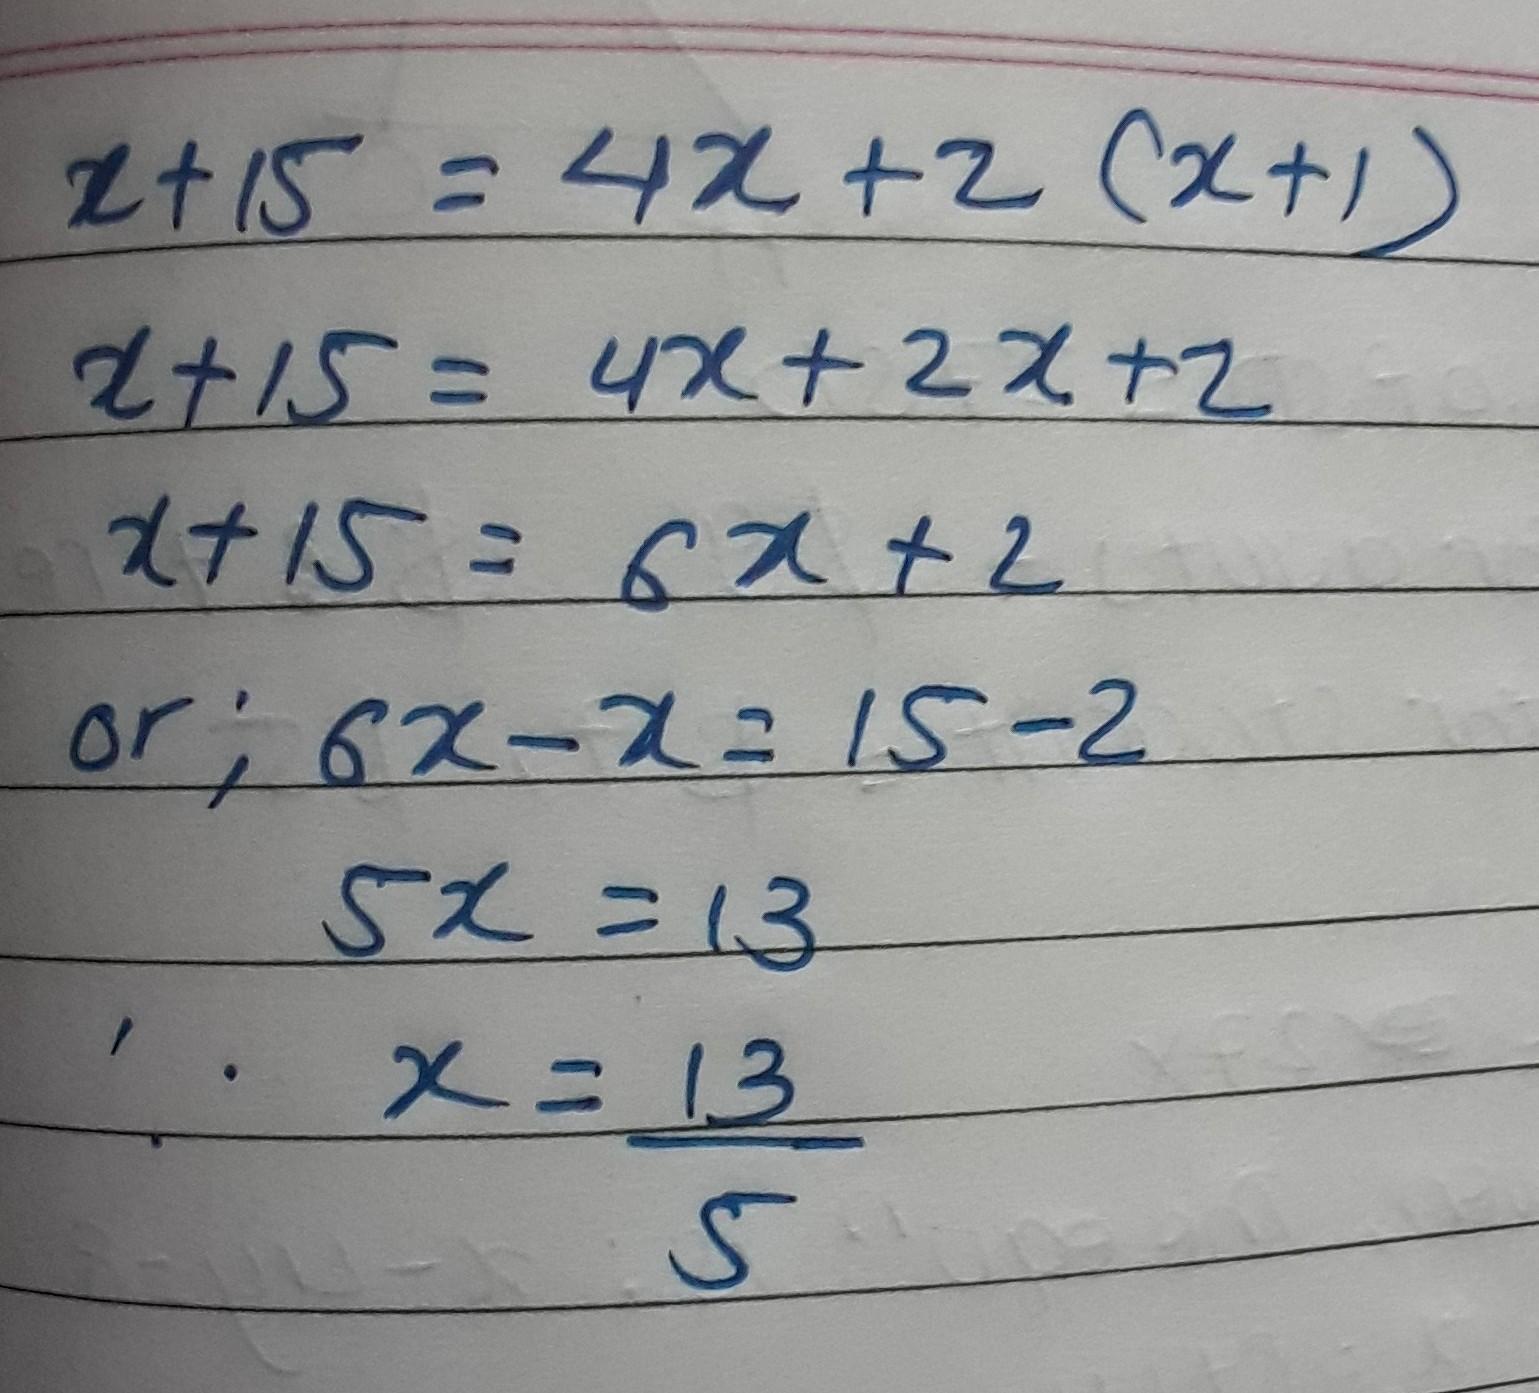 x+15 = 4x +2 (x+1)
x+15 = 4x+2x+2
x+15 = 6x+2
or; 6x-x = 15-2
5x = 13
∴ x = 13/5